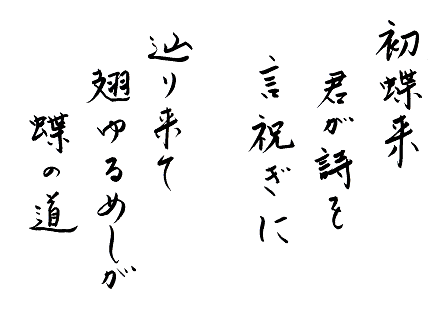 初蝶来
君が詩を
言祝ぎに
辿り来て
翅ゆるめしが
蝶の道